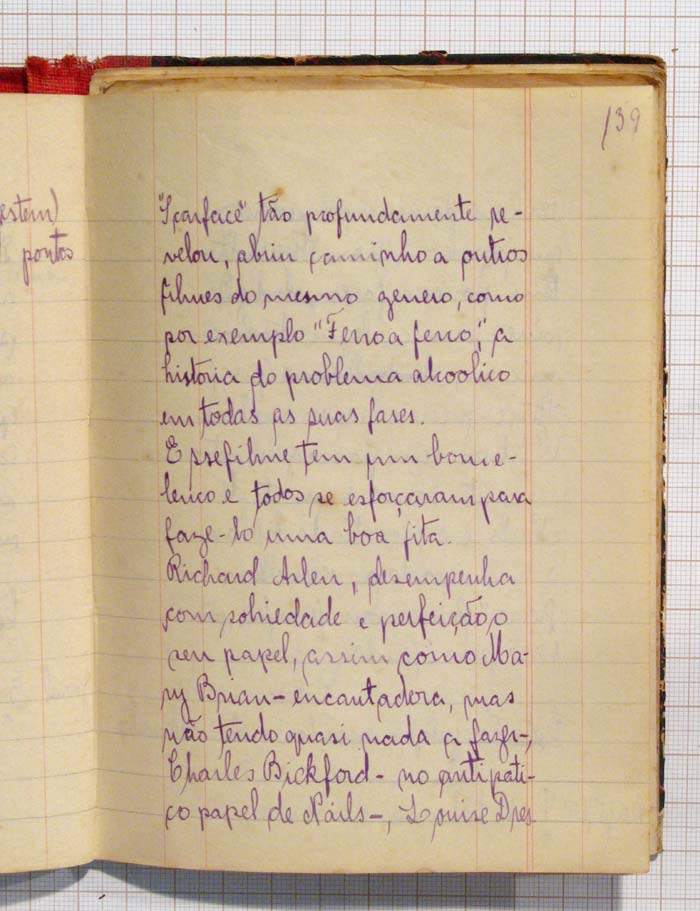 139
estern)
pontos
"Scarface" tão profundamente re-
velou, abriu caminho a outros
filmes do mesmo genero, como
por exemplo "Ferro a ferro", a
história do problema alcoolico
em todas as suas fases.
E sse filme tem um bom e-
lenco e todos se esforçaram para
faze-lo uma boa fita.
Richard Arlen, desempenha
com sobriedade e perfeição o
seu papel, assim como Ma-
ry Brian - encantadora, mas
não tendo quasi nada a fazer -,
Charles Bickford - no antipati-
co papel de Nails -, Louise Dres